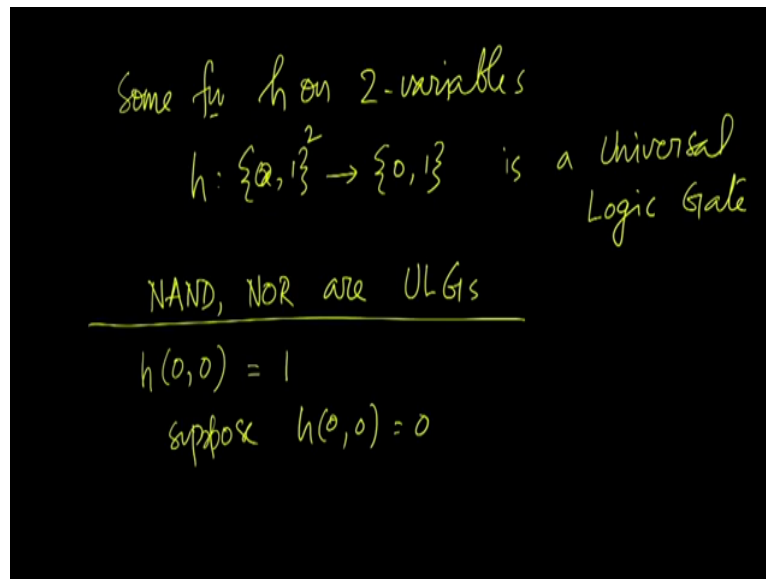 Some fn h on 2-variables
h: {0,1}² → {0,1} is a Universal
Logic Gate
NAND, NOR are ULGs
h(0,0) = 1
suppose h(0,0) = 0